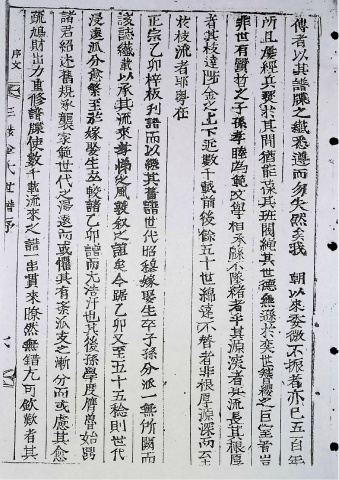 傳者以其譜牒之纖悉遵而勿失然矣我　朝以來委微不振者亦已五百年
所且屢經兵燹於其間猶能保其班閥繩其世德無遜於奕世簪纓之巨室者豈
非世有賢哲之子孫孝睦為範文學相承縣不墜緒者乎其源浚者其流長其根厚
者其枝達隋金之上下近數千載前後餘五十世綿遠不替者非根厚源深而云
於枝流者耶粤在
正宗乙卯梓板刊譜而以繼其舊譜世代昭穆嫁娶生卒子孫分派一無所闕而
該詳纖載以承其流來孝悌之風敦叙之誼矣今距乙卯又至五十五稔則世代
浸遠派分愈繁至於嫁娶生卒較諸乙卯譜而尤浩汗也其後孫學度膺魯始與
諸君紹述舊規承襲家範世代之浸遠而或懼其有条派支之漸分而或慮其愈
疏鳩財出力重修譜牒使數千載流來之譜一串貫來瞭然無錯尤可欽歎者其
序文
金氏世譜序